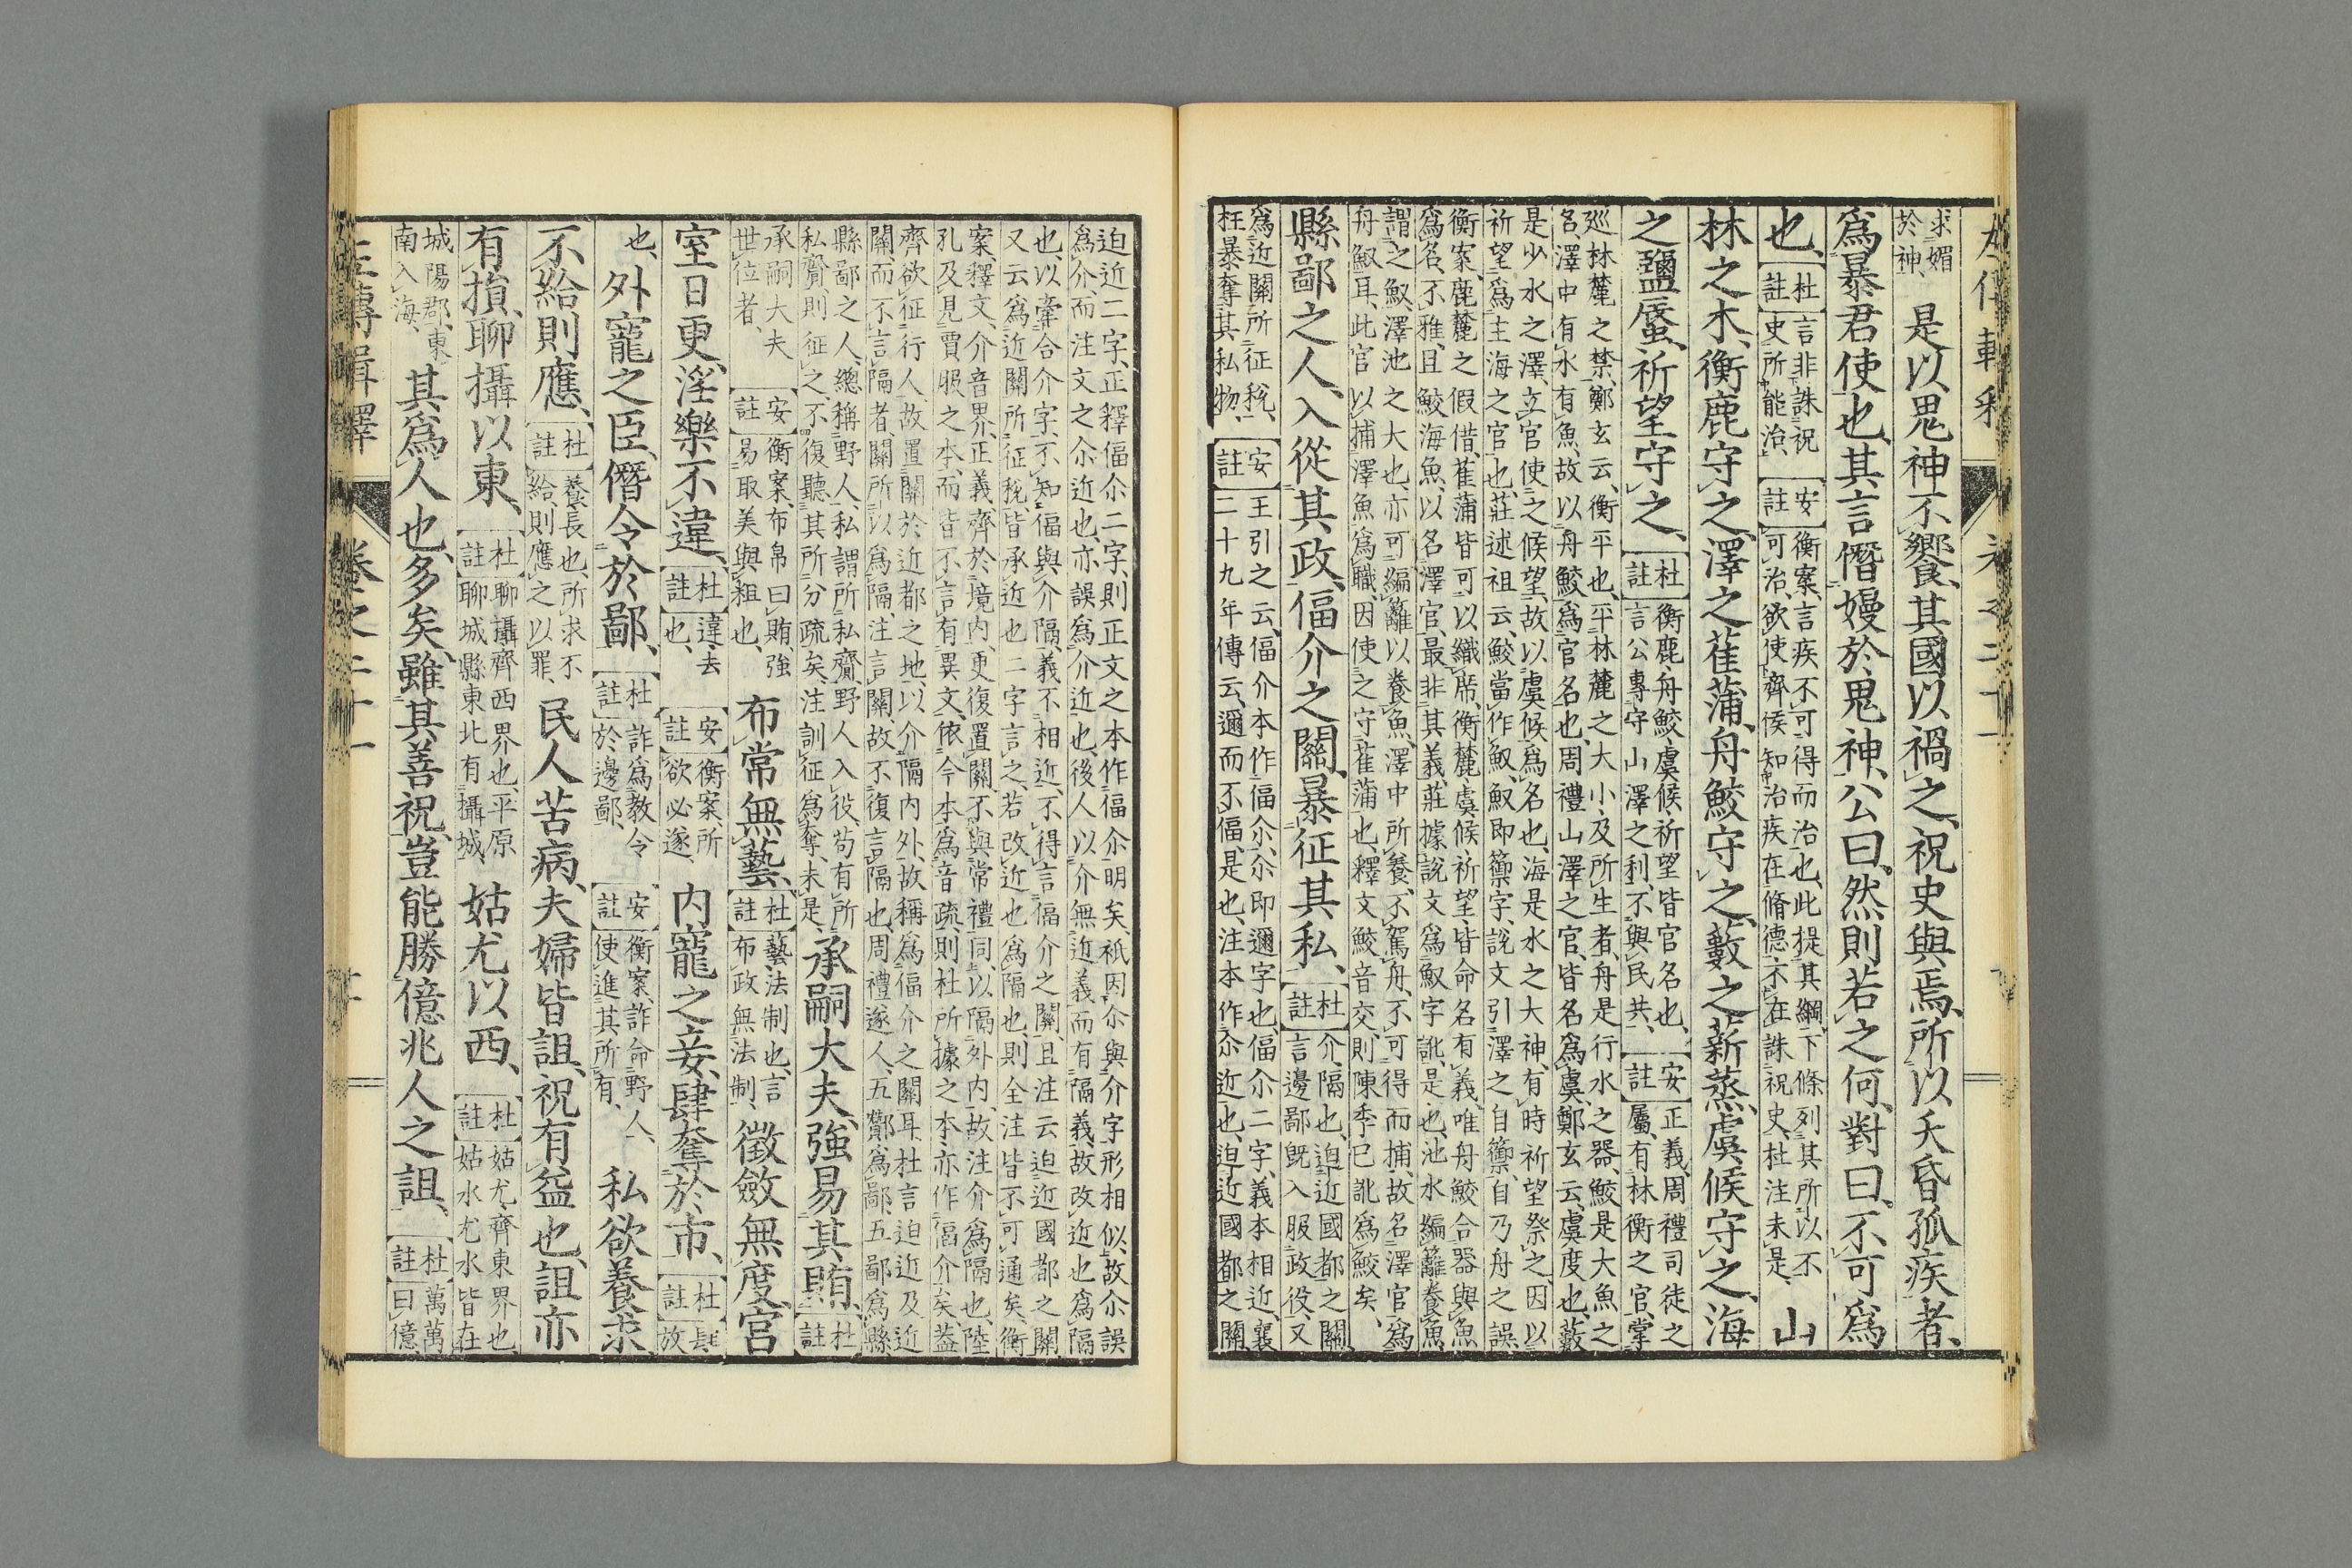 求媚於神、是以鬼神不饗、其國以禍之、祝史與焉、所以夭昏孤疾者、
爲暴君使也、其言僭嫚於鬼神、公曰、然則若之何、對曰、不可爲
也、杜註 言非誅祝史所能治、安註 衡案、言疾不可得而治也、此提其綱、下條列其所以不可治、欲使齊侯知治疾在脩德、不在誅祝史、杜注未是、山
林之木、衡鹿守之、澤之萑蒲、舟鮫守之、藪之薪蒸、虞候守之、海
之鹽蜃、祈望守之、杜註 衡鹿、舟鮫、虞候、祈望皆官名也、言公專守山澤之利、不與民共、安註 正義、周禮司徒之屬、有林衡之官、掌
巡林麓之禁、鄭玄云、衡平也、平林麓之大小、及所生者、舟是行水之器、鮫是大魚之
名、澤中有水有魚、故以舟鮫爲官名也、周禮山澤之官、皆名爲虞、鄭玄云、虞度也、藪
是少水之澤、立官使之候望、故以虞候爲名也、海是水之大神、有時祈望祭之、因以
祈望爲主海之官也、莊述祖云、鮫當作䰻、䰻即籞字、說文引澤之自籞、自乃舟之誤、
衡案、鹿麓之假借、萑蒲皆可以織席、衡麓、虞候、祈望皆命名有義、唯舟鮫合器與魚
爲名、不雅、且鮫海魚、以名澤官、最非其義、莊據說文爲䰻字訛、是也、池水編籬養魚、
謂之䰻、澤池之大也、亦可編籬以養魚、澤中所養、不駕舟、不可得而捕、故名澤官爲
舟䰻耳、此官以捕澤魚爲職、因使之守萑蒲也、釋文鮫音交、則陳季已訛爲鮫矣、
縣鄙之人、入從其政、偪介之關、暴征其私、杜註 介、隔也、迫近國都之關、言邊鄙旣入服政役、又
爲近關所征稅、枉暴奪其私物、安註 王引之云、偪介本作偪尒、尒即邇字也、偪尒二字、義本相近、襄二十九年傳云、邇而不偪、是也、注本作尒近也、迫近國都之關
迫近二字、正釋偪尒二字、則正文之本作偪尒明矣、祇因尒與介字形相似、故尒誤
爲介、而注文之尒近也、亦誤爲介近也、後人以介無近義、而有隔義、故改近也爲隔
也、以牽合介字、不知偪與介隔、義不相近、不得言偪介之關、且注云迫近國都之關、
又云爲近關所征稅、皆承近也二字言之、若改近也爲隔也、則全注皆不可通矣、衡
案、釋文、介音界、正義、齊於境內、更復置關、不與常禮同、以隔外內、故注介爲隔也、陸
孔及見賈服之本、而皆不言有異文、依今本爲音疏、則杜所據之本、亦作偪介矣、蓋
齊欲征行人、故置關於近都之地、以介隔內外、故稱爲偪介之關耳、杜言迫近及近
關、而不言隔者、關所以爲隔、注言關、故不復言隔也、周禮遂人、五酇爲鄙、五鄙爲縣、
縣鄙之人總稱野人、私謂所私齎、野人入役、苟有所
私齎則征之、不復聽其所分疏矣、注訓征爲奪、未是、承嗣大夫、強易其賄、杜註
承嗣大夫世位者、安註 衡案、布帛曰賄、強易取美與粗也、布常無藝、杜註 藝、法制也、言布政無法制、徵斂無度、宮
室日更、淫樂不違、杜註 違、去也、安註 衡案、所欲必遂、內寵之妾、肆奪於市、杜註 肆放
也、外寵之臣、僭令於鄙、杜註 詐爲教令於邊鄙、安註 衡案、詐命野人、使進其所有、私欲養求
不給則應、杜註 養、長也、所求不給、則應之以罪、民人苦病、夫婦皆詛、祝有益也、詛亦
有損、聊攝以東、杜註 聊攝、齊西界也、平原聊城縣東北有攝城、姑尤以西、杜註 姑尤、齊東界也、姑水尤水皆在
城陽郡、東南入海、其爲人也多矣、雖其善祝、豈能勝億兆人之詛、杜註 萬萬曰億
卷之二十一